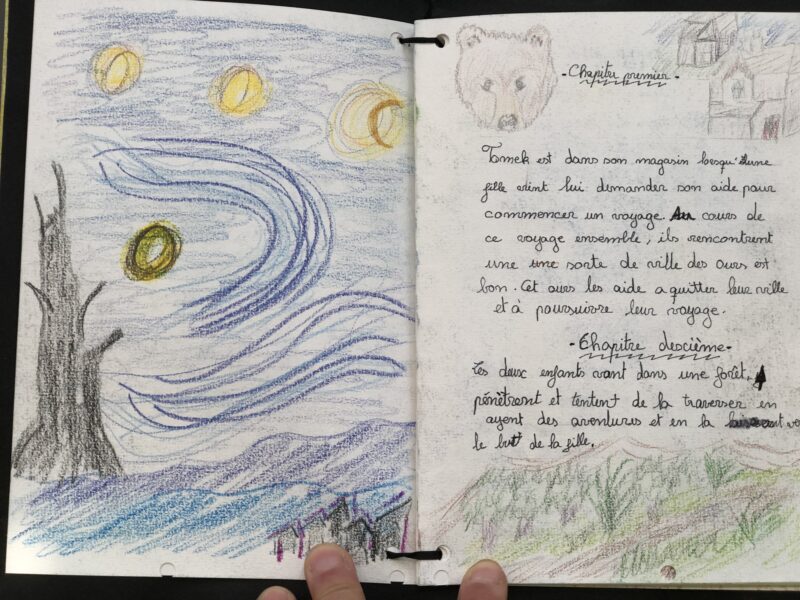 - Chapitre premier -
Tomek est dans son magasin lorsqu'une
fille vint lui demander son aide pour
commencer un voyage. Au cours de
ce voyage ensemble, ils rencontrent
une une sorte de ville des ours est
bon. Cet ours les aide a quitter leur ville
et à poursuivre leur voyage.
- Chapitre deuxième -
Les deux enfants vont dans une forêt,
pénètrent et tentent de la traverser en
ayent des aventures et en la
le but de la fille.